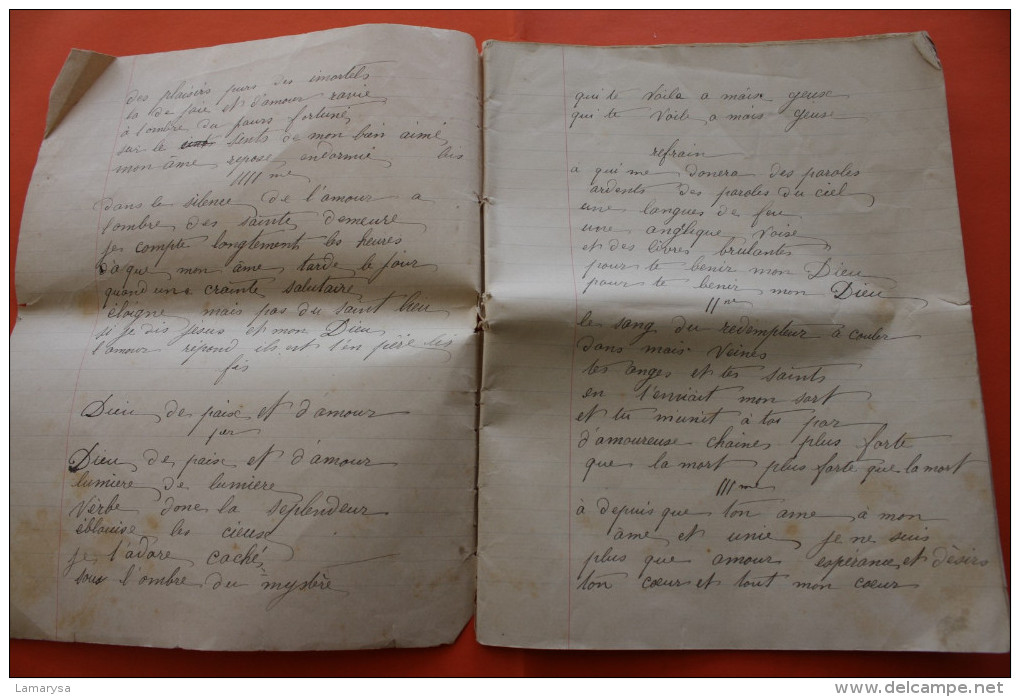 des plaisirs purs des imortels
la de joie et d'amour ravie
à l'ombre du fours fortuné
sur le sents de mon bien aimé
mon âme repose endormie bis
IIII me
dans le silence de l'amour a
l'ombre des sainte demeure
je compte longtements les heures
à que mon âme tarde le jour
quand une crainte salutaire
éloigne mais pas du saint lieu
si je dis Jesus et mon Dieu
l'amour répond ils est l'en père bis
fois
Dieu de paix et d'amour
par
Dieu de paix et d'amour
lumière de lumière
Verbe donc la seplendeur
éblouise les cieux
je t'adore caché
sous l'ombre du mystère
qui te Voila a mais yeux
qui te Voile a mais yeux
refrain
a qui me donera des paroles
ardents des paroles du ciel
une langues de feu
une anglique Voise
et des livres brûlantes
pour te benir mon Dieu
pour te benir mon Dieu
II me
le sang du redempteur à couler
dans mais Veines
les anges et les saints
en l'enviait mon sort
et tu m'unit à toi par
d'amoureuse chaines plus forte
que la mort plus forte que la mort
III me
à depuis que ton ame à mon
âme et unie je ne suis
plus que amour espérance et désirs
ton cœur et tout mon cœur
Lamarysa
delcampe.net